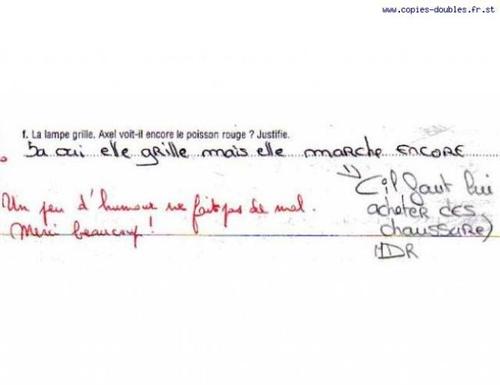 www.copies-doubles.fr.st
f. La lampe grille. Axel voit-il encore le poisson rouge ? Justifie.
Sa oui elle grille mais elle marche encore
Un peu d'humour ne fait pas de mal.
Merci beaucoup !
(il faut lui
acheter des
chaussure)
MDR